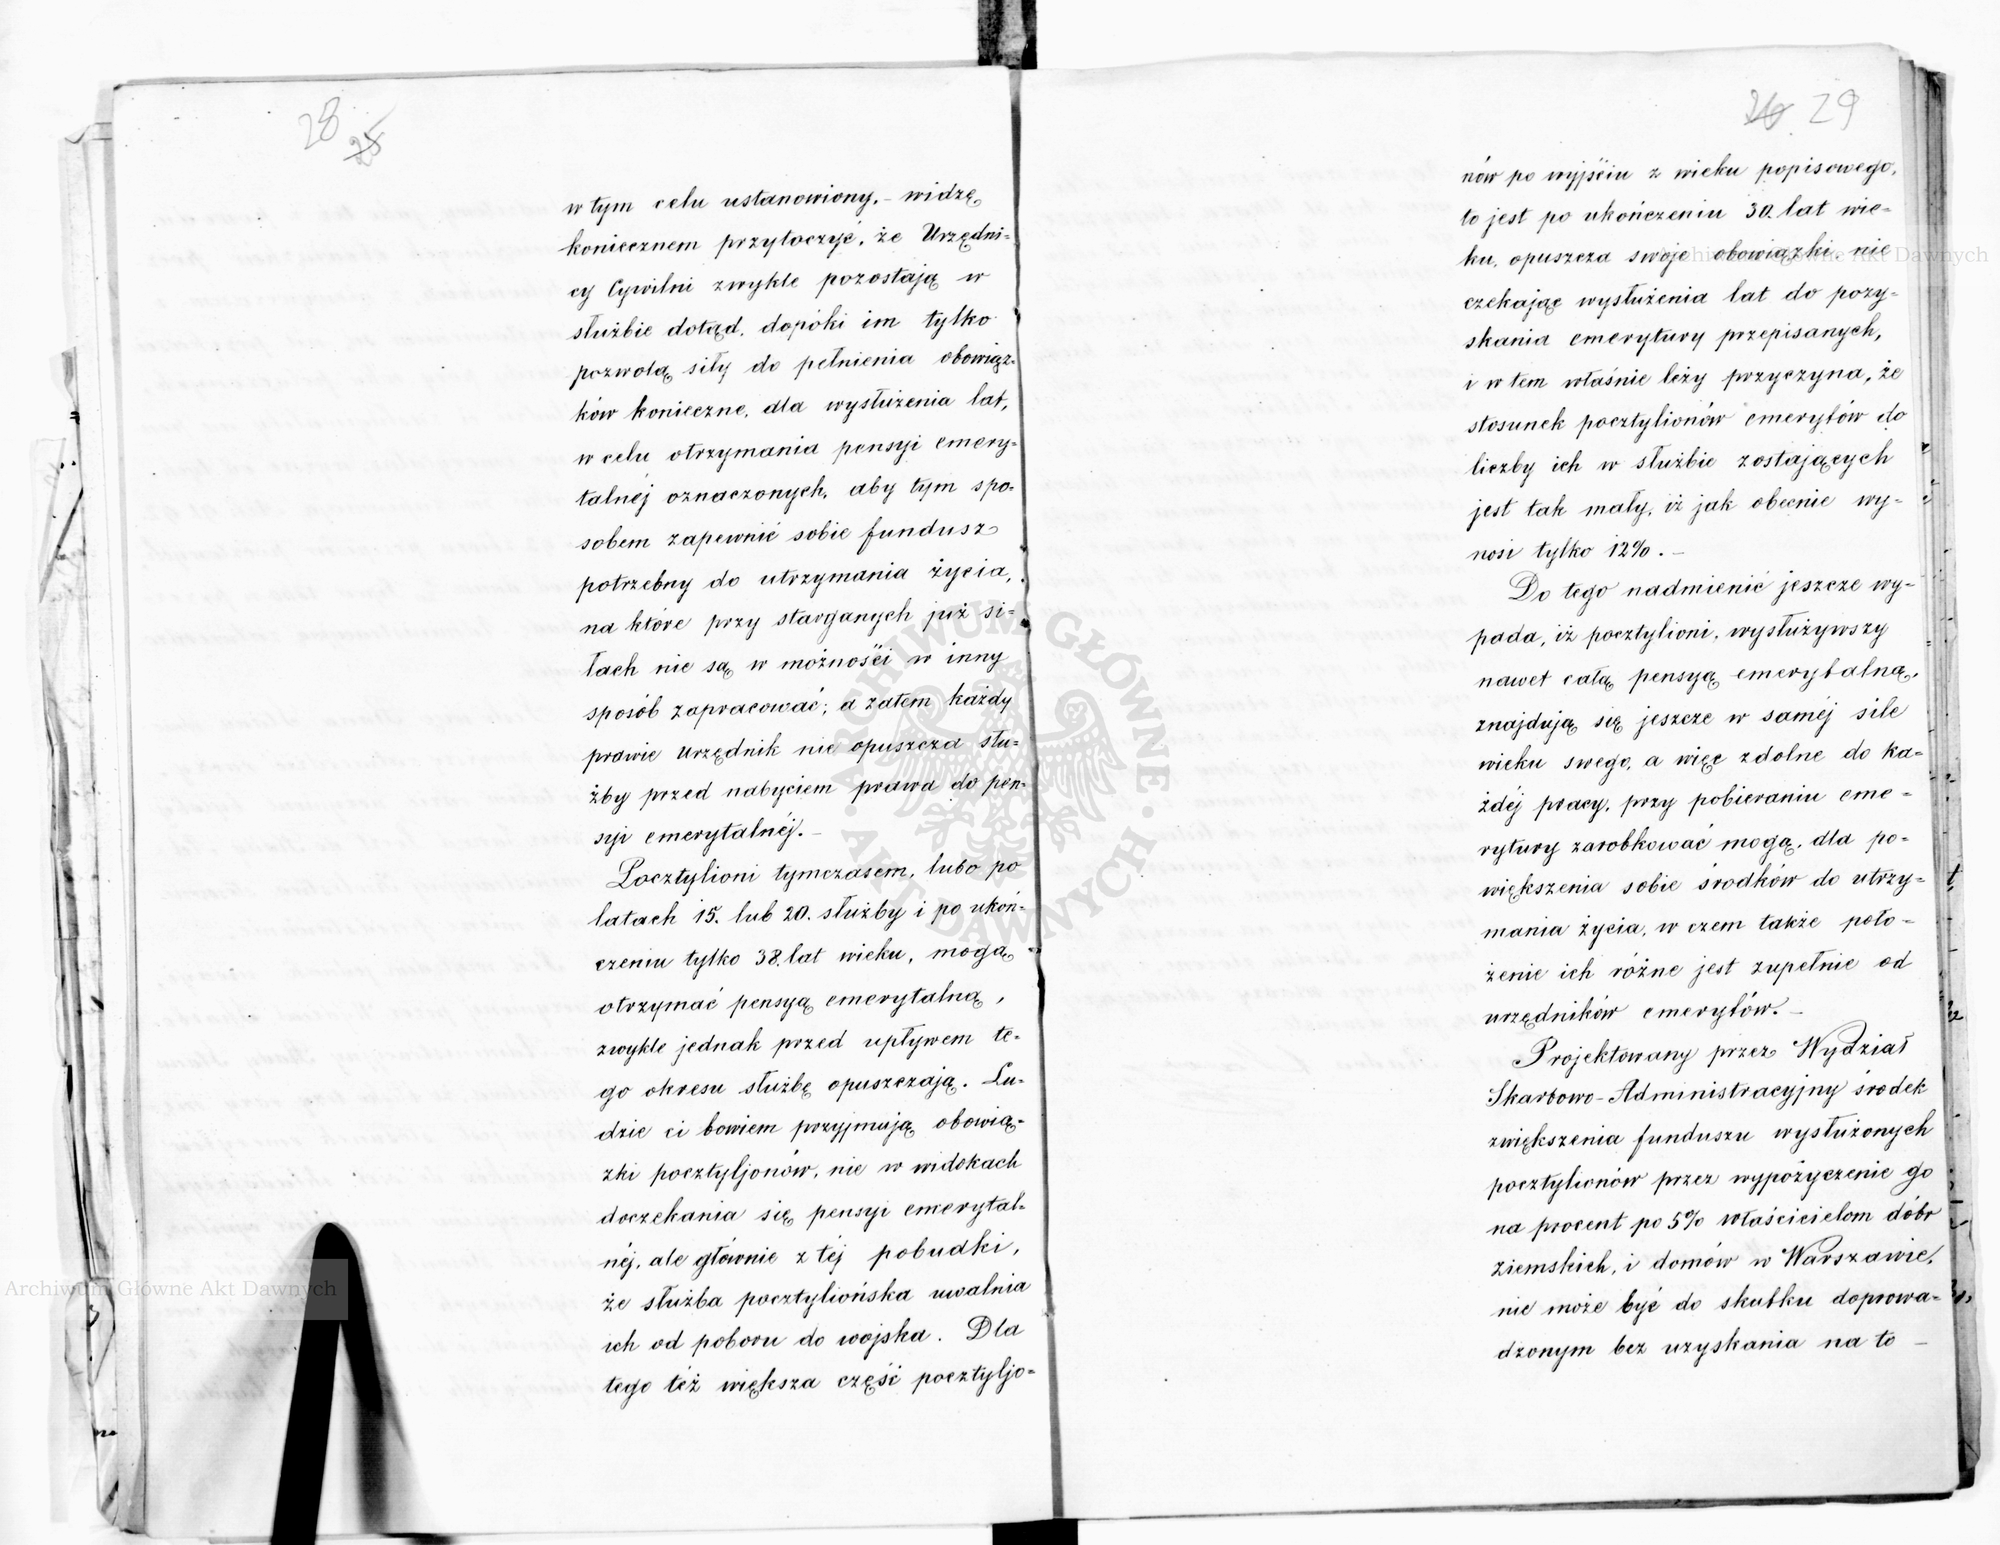 28 25
w tym celu ustanowiony. – widzę
koniecznem przytoczyć, że Urzędni=
cy Cywilni zwykle pozostają w
służbie dotąd, dopóki im tylko
pozwolą siły do pełnienia obowiąz=
ków konieczne, dla wysłużenia lat,
w celu otrzymania pensyi emery=
talnéj oznaczonych, aby tym spo=
sobem zapewnić sobie fundusz
potrzebny do utrzymania życia,
na które przy starganych już si=
łach nie są w możności w inny
sposób zapracować; a zatem każdy
prawie urzędnik nie opuszcza słu=
żby przed nabyciem prawa do pen=
syi emerytalnéj. –
Pocztylioni tymczasem, lubo po
latach 15. lub 20. służby i po ukoń=
czeniu tylko 38. lat wieku, mogą
otrzymać pensyą emerytalną,
zwykle jednak przed upływem te=
go okresu służbę opuszczają. Lu=
dzie ci bowiem przyjmują obowią=
zki pocztyljonów, nie w widokach
doczekania się pensyi emerytal=
néj, ale głównie z téj pobudki,
że służba pocztyliońska uwalnia
ich od poboru do wojska. Dla
tego téż większa część pocztyljo=
26 29
nów po wyjściu z wieku popisowego,
to jest po ukończeniu 30. lat wie=
ku, opuszcza swoje obowiązki, nie
czekając wysłużenia lat do pozy=
skania emerytury przepisanych,
i w tem właśnie leży przyczyna, że
stosunek pocztylionów emerytów do
liczby ich w służbie zostających
jest tak mały, iż jak obecnie wy=
nosi tylko 12%. –
Do tego nadmienić jeszcze wy=
pada, iż pocztylioni, wysłużywszy
nawet całą pensyą emerytalną,
znajdują się jeszcze w saméj sile
wieku swego, a więc zdolne do ka=
żdéj pracy, przy pobieraniu eme=
rytury zarobkować mogą, dla po=
większenia sobie środków do utrzy=
mania życia, w czem także poło=
żenie ich różne jest zupełnie od
urzędników emerytów. –
Projektowany przez Wydział
Skarbowo-Administracyjny środek
zwiększenia funduszu wysłużonych
pocztylionów przez wypożyczenie go
na procent po 5% właścicielom dóbr
ziemskich, i domów w Warszawie,
nie może być do skutku doprowa=
dzonym bez uzyskania na to –
ARCHIWUM GŁÓWNE · AKT DAWNYCH ·
Archiwum Główne Akt Dawnych
Archiwum Główne Akt Dawnych